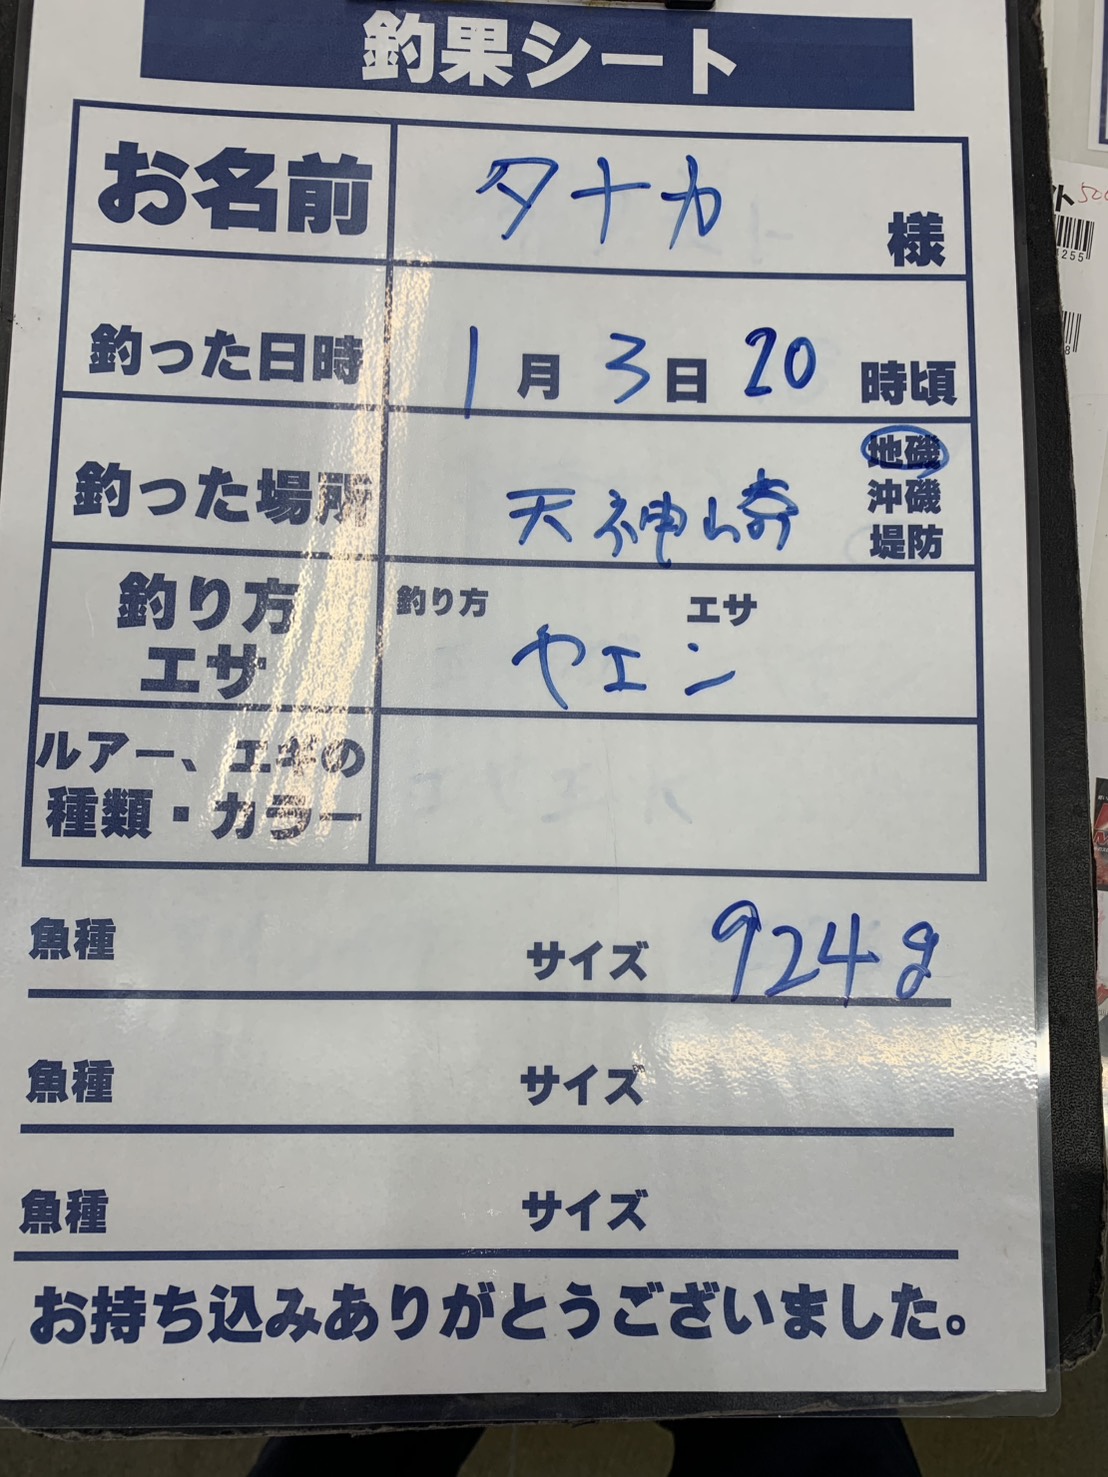 釣果シート
お名前 タナカ 様
釣った日時 1月3日20時頃
釣った場所 天神崎 地磯
沖磯
堤防
釣り方 エサ
釣り方 エサ
ヤエン
ルアー、エギの
種類・カラー
魚種 サイズ 924g
魚種 サイズ
魚種 サイズ
お持ち込みありがとうございました。
ト 500
255
8